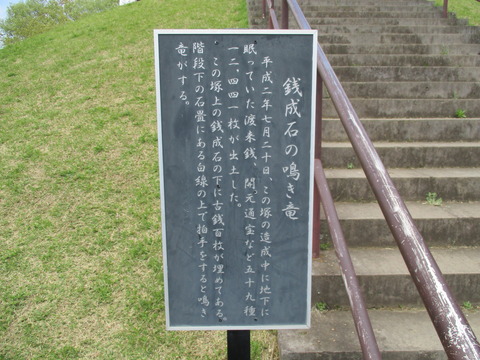 銭成石の鳴き竜
平成二年七月二十日、この塚の造成中に地下に
眠っていた渡来銭、開元通宝など五十九種
一二、四四一枚が出土した。
この塚上の銭成石の下に古銭百枚が埋めてある。
階段下の石畳にある白線の上で拍手をすると鳴き
竜がする。